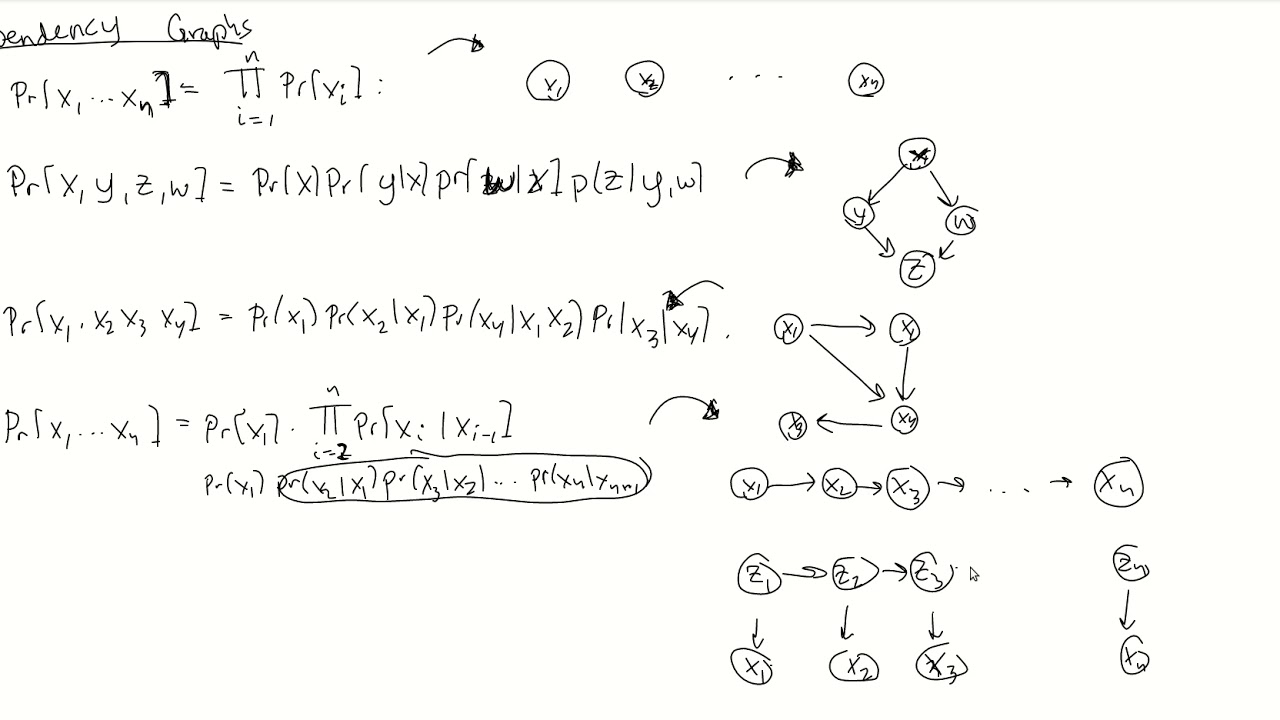 pendency Graphs
Pr[x₁ ... xₙ] = ∏ᵢ₌₁ⁿ Pr[xᵢ] :
x₁ x₂ ... xₙ
Pr[x, y, z, w] = Pr(x) Pr(y|x) pr[w|x] p(z|y,w)
x
y w
z
Pr[x₁. x₂ x₃ x₄] = Pr(x₁) Pr(x₂|x₁) Pr(x₄|x₁ x₂) Pr(x₃|x₄).
x₁
x₃ x₄
Pr[x₁ ... xₙ] = Pr[x₁] . ∏ᵢ₌₂ⁿ Pr[xᵢ | xᵢ₋₁]
Pr(x₁) pr(x₂|x₁) pr(x₃|x₂) ... pr(xₙ|xₙ₋₁)
x₁ x₂ x₃ ... xₙ
z₁ z₂ z₃ zₙ
x₁ x₂ x₃ xₙ